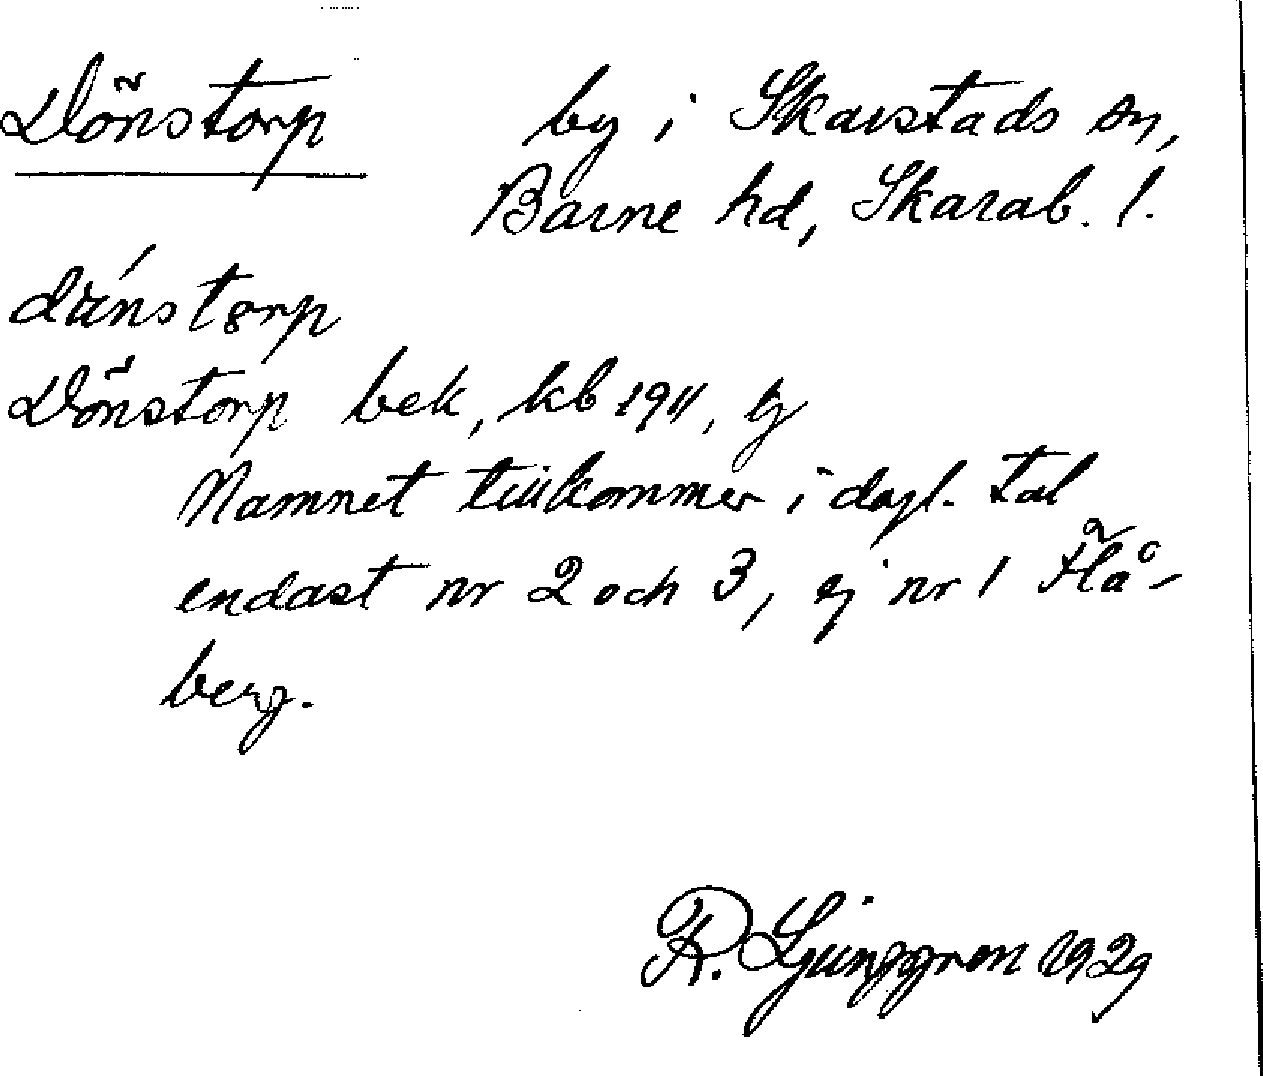 Dönstorp by i Skarstads sn,
Barne hd, Skarab. l.
Dönstorp bek, kb 1911, tj
Namnet tillkommer i dagl. tal
endast nr 2 och 3, ej nr 1 Flå-
berg.
R. Ljunggren 1929